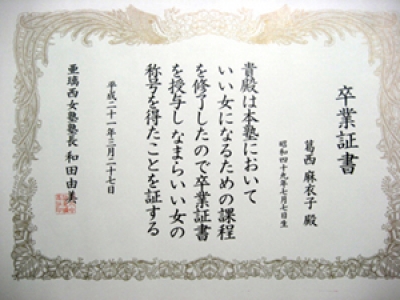 卒業証書
葛西 麻衣子 殿
昭和四十九年七月七日生
貴殿は本塾において
いい女になるための課程
を修了したので卒業証書
を授与しなまらいい女の
称号を得たことを証する
平成二十一年三月二十七日
亜璃西女塾塾長 和田由美